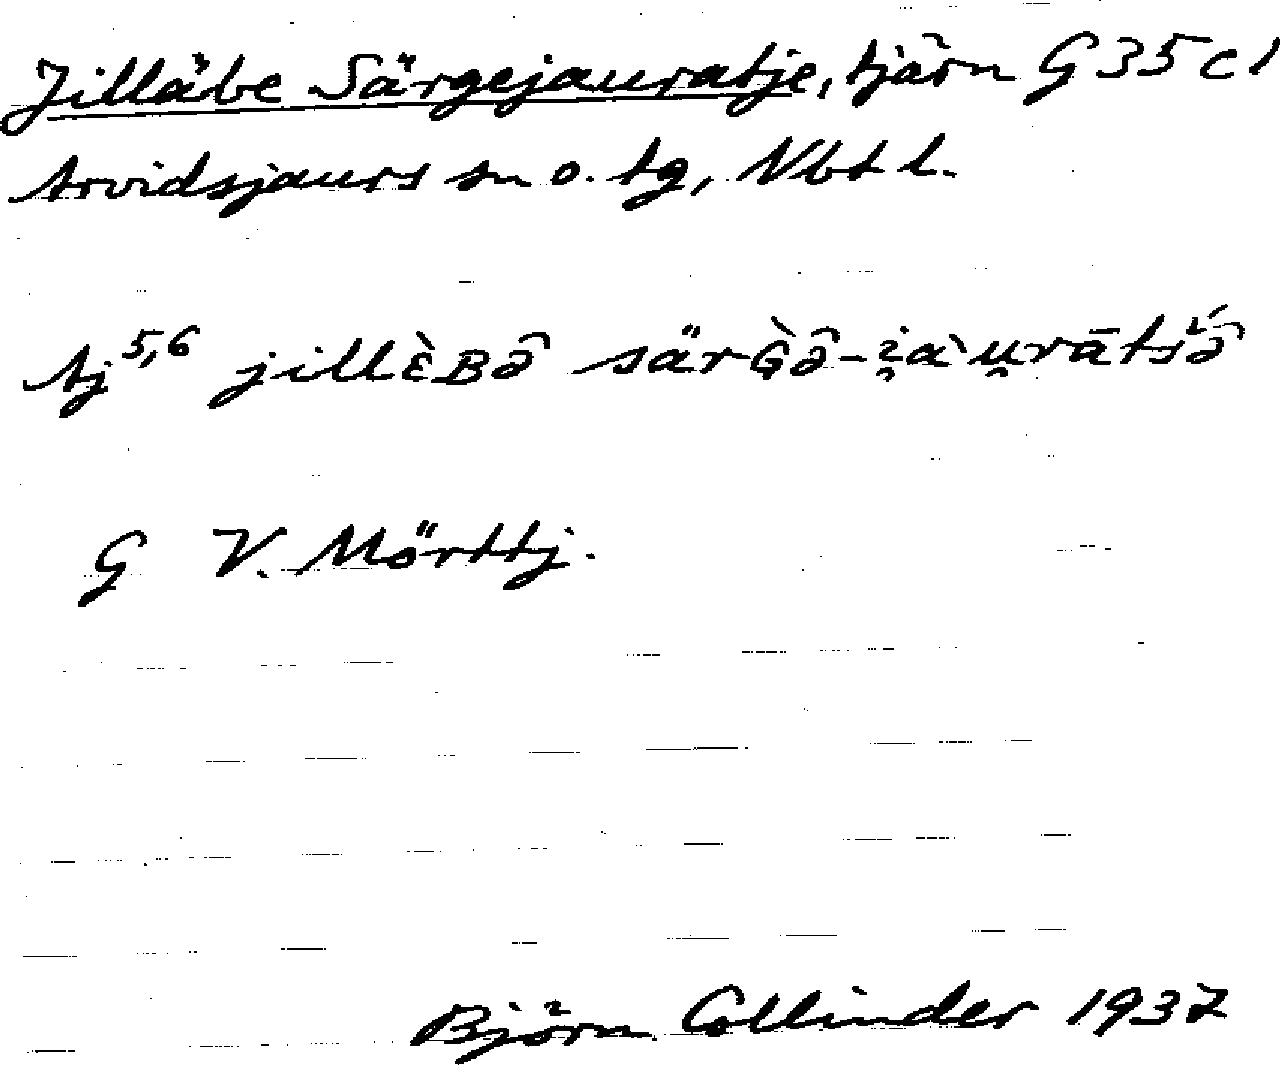 Jilläbe Särgejauratje, tjärn G 35 c 1
Arvidsjaurs sn o. tg, Nbt l.
Aj 5,6 jillὲʙə̑ särɢ̀ə̑-i̯à u̯rātśə̑
G V. Mörttj.
Björn Collinder 1937